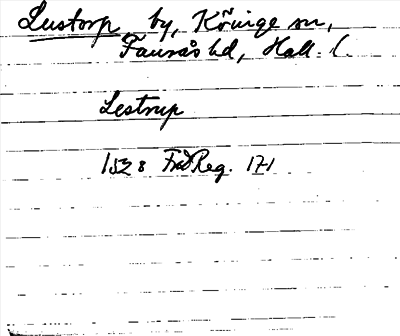 Lustorp by, Köinge sn,
Faurås hd, Hall. l.
Lestrup
1528 FrdReg. 171